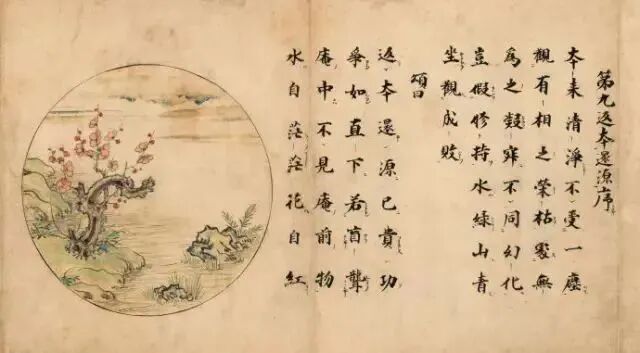 第九返夲還源序
夲来清淨不受一塵
觀有相之榮枯處無
爲之凝寂不同幻化
豈假修持水綠山青
坐觀成敗
頌曰
返夲還源已費功
爭如直下若盲聾
庵中不見庵前物
水自茫茫花自紅